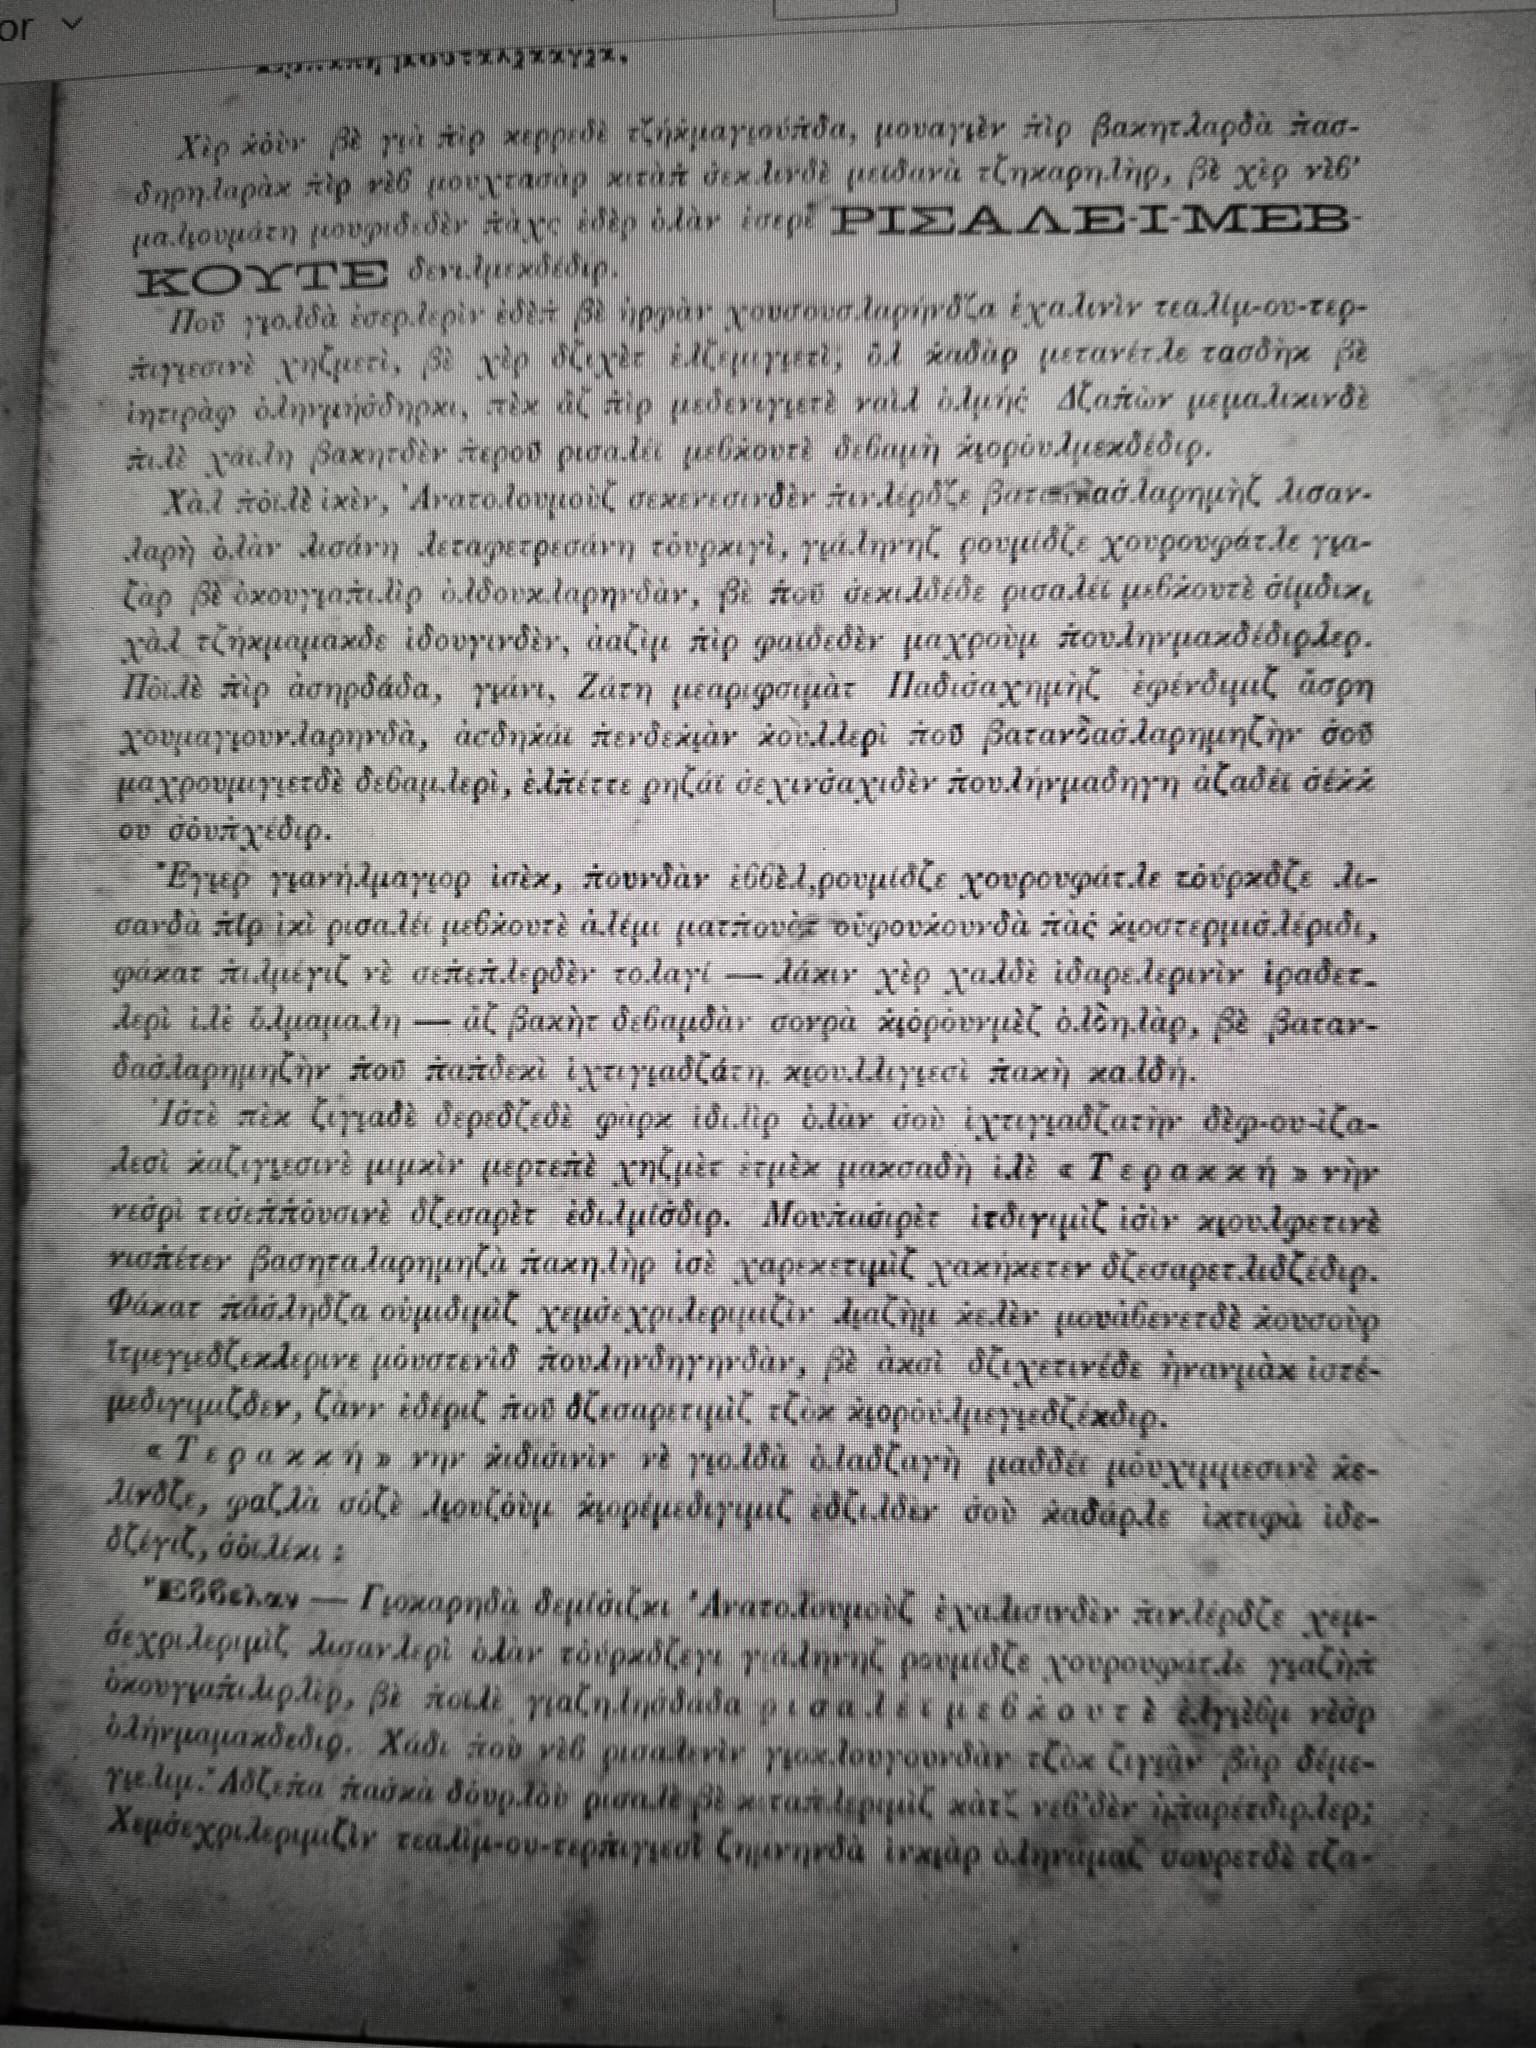 or
Χὲρ κὀὺν βὲ γιὰ πὶρ κερρεδὲ τζήκμαγιούπδα, μουαγιὲν πὶρ βακητλαρδὰ πασ-
δηρηλαρὰκ πὶρ νὲβ μουχτασὰρ κιτὰπ σεκλινδὲ μεϊδανὰ τζηκαρηλὴρ, βὲ χὲρ νὲβ'
μαλιουμάτη μουφιδεδὲν πὰχς ἐδὲρ ὀλὰν ἐσερὲ ΡΙΣΑΛΕ-Ι-ΜΕΒ-
ΚΟΥΤΕ δενιλμεκδέδιρ.
Ποῦ γιολδὰ ἐσερλερὶν ἐδὲπ βὲ ἠρφὰν χουσουσλαρήνδζα ἐχαλινὶν τεαλίμ-ου-τερ-
πιγιεσινὲ χηζμετὶ, βὲ χὲρ δζιχὲτ ἐλζεμιγιετὶ, ὂλ καδὰρ μετανέτλε τασδὴκ βὲ
ἰητιρὰφ ὀληνμήσδηρκι, πὲκ ἂζ πὶρ μεδενιγιετὲ ναὶλ ὀλμής Δζαπὼν μεμαλικινδὲ
πιλὲ χάιλη βακητδὲν περοῦ ρισαλέϊ μεβκουτὲ δεβαμὴ κιορὀυλμεκδέδιρ.
Χὰλ πὀιλὲ ἰκὲν, Ἀνατολουμοὺζ σεκενεσινδὲν πινλέρδζε λισαν-
λαρὴ ὀλὰν λισάνη λεταφετρεσάνη τὀυρκιγὶ, γιάληνηζ ρουμίδζε χουρουφάτλε για-
ζὰρ βὲ ὀκουγιαπιλὶρ ὀλδουκλαρηνδὰν, βὲ ποῦ σεκιλδέδε ρισαλέϊ μεβκουτὲ σίμδικι
χὰλ τζήκμαμακδε ἰδουγινδὲν, ἀαζὶμ πὶρ φαϊδεδὲν μαχροὺμ πουληνμακδέδιρλερ.
Πὀιλὲ πὶρ ἀσηρδάδα, γιάνι, Ζάτη μεαριφσιμὰτ Παδισαχημὴζ ἐφένδιμιζ ἄσρη
χουμαγιουνλαρηνδὰ, ἀσδηκάι πενδεκιὰν κοὺλλερὶ ποῦ βατανδασλαρημηζὴν σοῦ
μαχρουμιγιετδὲ δεβαμλερὶ, ἐλπέττε ρηζάϊ σεχινσαχιδὲν πουλήνμαδηγη ἀζαδέϊ σέκκ
ου σὀυπχέδιρ.
Ἔγιερ γιανήλμαγιορ ἰσὲκ, πουνδὰν ἐββὲλ, ρουμίδζε χουρουφάτλε τὀύρκδζε λι-
σανδὰ πὶρ ἰκὶ ρισαλέϊ μεβκουτὲ ἀλέμι ματπουὰτ οὐφουκουνδὰ πὰς κιοστερμισλέριδι,
φάκατ πιλμέγιζ νὲ σεπεπλερδὲν τολαγί — λάκιν χὲρ χαλδὲ ἰδαρελερινὶν ἰραδετ-
λερὶ ἰλὲ ὄλμαμαλη — ἂζ βακὴτ δεβαμδὰν σονρὰ κιὀρὀυνμὲζ ὀλδηλὰρ, βὲ βαταν-
δασλαρημηζὴν ποῦ παπδεκὶ ἰχτιγιαδζάτη κιουλλιγιεσὶ πακὴ καλδή.
Ἰστὲ πὲκ ζιγιαδὲ δερεδζεδὲ φὰρκ ἰδιλὶρ ὀλὰν σοὺ ἰχτιγιαδζατὴν δὲφ-ου-ἰζα-
λεσὶ καζιγιεσινὲ μιμκὶν μερτεπὲ χηζμὲτ ἐτμὲκ μακσαδὴ ἰλὲ «Τερακκή» νὴν
νεσρὶ τεσεππὀυσινὲ δζεσαρὲτ ἐδιλμίσδιρ. Μουπασιρὲτ ἰτδιγιμὶζ ἰσὶν κιουλφετινὲ
νισπέτεν βασηταλαρημηζὰ πακηλὴρ ἰσὲ χαρεκετιμὶζ χακήκετεν δζεσαρετλιδζέδιρ.
Φάκατ πάσληδζα οὐμιδιμὶζ χεμσεχριλεριμιζὶν λιαζὴμ κελὲν μουάβενετδὲ κουσοὺρ
ἰτμεγιεδζεκλερινε μὀυστενὶδ πουληνδηγηνδὰν, βὲ ἀκσὶ δζιχετινέδε ἠνανμὰκ ἰστέ-
μεδιγιμιζδεν, ζὰνν ἐδέριζ ποῦ δζεσαρετιμὶζ τζὀκ κιορὀύλμεγιεδζέκδιρ.
«Τερακκή» νην κιδισινὶν νὲ γιολδὰ ὀλαδζαγὴ μαδδέϊ μὀυχιμμεσινὲ κε-
λίνδζε, φαζλὰ σὀζὲ λιουζὀὺμ κιορέμεδιγιμιζ ἐδζιλδὲν σοὺ καδάρλε ἰκτιφὰ ἰδε-
δζέγιζ, σὀιλέκι :
Ἔββελαν — Γιοκαρηδὰ δεμίσιζκι Ἀνατολουμοὺζ ἐχαλισινδὲν πινλέρδζε χεμ-
σεχριλεριμὶζ λισανλερὶ ὀλὰν τὀύρκδζεγι γιάληνηζ ρουμίδζε χουρουφάτλε γιαζὴπ
ὀκουγιαπιλιρλὲρ, βὲ πὀιλὲ γιαζηλησδάδα ρισαλέϊ μεβκουτὲ ἐλγιὲβμ νὲσρ
ὀλήνμαμακδεδιρ. Χάδι ποὺ νὲβ ρισαλενὶν γιοκλουγουνδὰν τζὀκ ζιγιὰν βὰρ δέμε-
γιελιμ. Ἀδζεπα πασκὰ δὀυρλὀὺ ρισαλὲ βὲ κιταπλεριμὶζ κὰτζ νεβ'δὲν ἠπαρέτδιρλερ;
Χεμσεχριλεριμιζὶν τεαλὶμ-ου-τερπιγιεσὶ ζημνηνδὰ ἰνκιὰρ ὀληνάμαζ σουρετδὲ τζα-